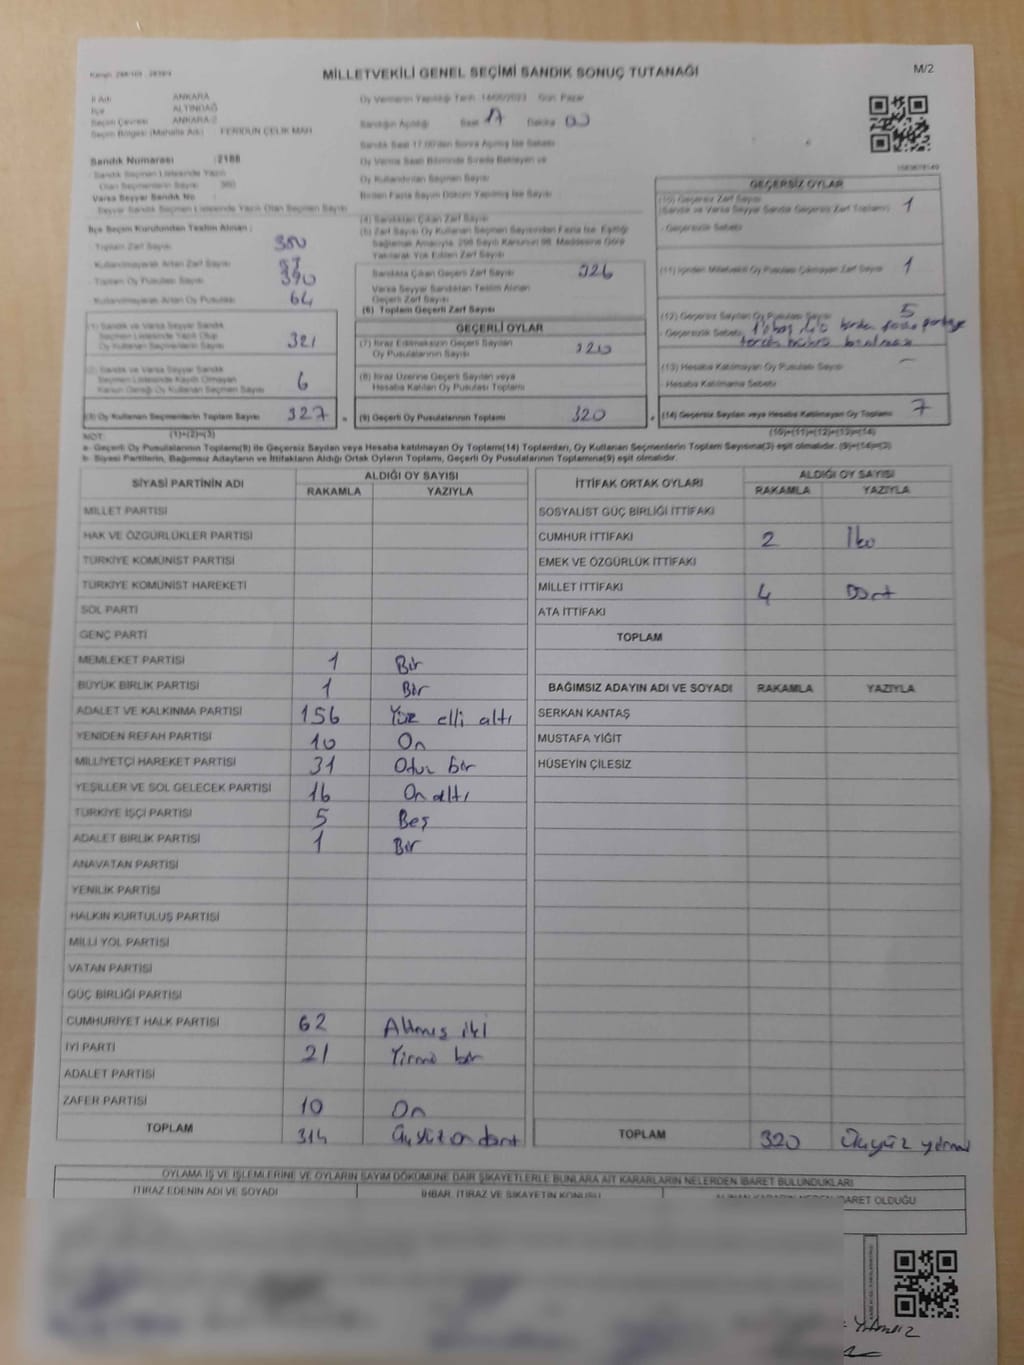 MİLLETVEKİLİ GENEL SEÇİMİ SANDIK SONUÇ TUTANAĞI
M/2
İl Adı ANKARA
İlçe ALTINDAĞ
Seçim Çevresi ANKARA-2
Seçim Bölgesi (Mahalle Adı) FERİDUN ÇELİK MAH
Sandık Numarası :2188
Sandık Seçmen Listesinde Yazılı
Olan Seçmenlerin Sayısı 360
Varsa Seyyar Sandık No
Seyyar Sandık Seçmen Listesinde Yazılı Olan Seçmen Sayısı
İlçe Seçim Kurulundan Teslim Alınan ;
Toplam Zarf Sayısı 380
Kullanılmayarak Artan Zarf Sayısı
Toplam Oy Pusulası Sayısı 390
Kullanılmayarak Artan Oy Pusulası 64
(1) Sandık ve Varsa Seyyar Sandık
Seçmen Listesinde Yazılı Olup
Oy Kullanan Seçmen Sayısı 321
(2) Sandık ve Varsa Seyyar Sandık
Seçmen Listesinde Kayıtlı Olmayan
Kanun Gereği Oy Kullanan Seçmen Sayısı 6
(3) Oy Kullanan Seçmenlerin Toplam Sayısı 327 =
(1)+(2)=(3)
Oy Vermenin Yapıldığı Tarih 14/05/2023 Gün Pazar
Sandığın Açıldığı Saat 17 Dakika 00
Sandık Saat 17.00'den Sonra Açılmış İse Sebebi
Oy Verme Saati Bitiminde Sırada Bekleyen ve
Oy Kullandırılan Seçmen Sayısı
Birden Fazla Sayım Döküm Yapılmış İse Sayısı
(4) Sandıktan Çıkan Zarf Sayısı
(5) Zarf Sayısı Oy Kullanan Seçmen Sayısından Fazla İse, Eşitliği
Sağlamak Amacıyla, 298 Sayılı Kanunun 98. Maddesine Göre
Yakılarak Yok Edilen Zarf Sayısı
Sandıkta Çıkan Geçerli Zarf Sayısı 326
Varsa Seyyar Sandıktan Teslim Alınan
Geçerli Zarf Sayısı
(6) Toplam Geçerli Zarf Sayısı
GEÇERLİ OYLAR
(7) İtiraz Edilmeksizin Geçerli Sayılan
Oy Pusulalarının Sayısı 320
(8) İtiraz Üzerine Geçerli Sayılan veya
Hesaba Katılan Oy Pusulası Toplamı
(9) Geçerli Oy Pusulalarının Toplamı 320 +
GEÇERSİZ OYLAR
(10) Geçersiz Zarf Sayısı
(Sandık ve Varsa Seyyar Sandık Geçersiz Zarf Toplamı) 1
Geçersizlik Sebebi
(11) İçinden Milletvekili Oy Pusulası Çıkmayan Zarf Sayısı 1
(12) Geçersiz Sayılan Oy Pusulası Sayısı 5
Geçersizlik Sebebi
(13) Hesaba Katılmayan Oy Pusulası Sayısı –
Hesaba Katılmama Sebebi
(14) Geçersiz Sayılan veya Hesaba Katılmayan Oy Toplamı 7
(10)+(11)+(12)+(13)=(14)
NOT:
a- Geçerli Oy Pusulalarının Toplamı(9) ile Geçersiz Sayılan veya Hesaba katılmayan Oy Toplamı(14) Toplamları, Oy Kullanan Seçmenlerin Toplam Sayısına(3) eşit olmalıdır. (9)+(14)=(3)
b- Siyasi Partilerin, Bağımsız Adayların ve İttifakların Aldığı Ortak Oyların Toplamı, Geçerli Oy Pusulalarının Toplamına(9) eşit olmalıdır.
SİYASİ PARTİNİN ADI ALDIĞI OY SAYISI
RAKAMLA YAZIYLA
MİLLET PARTİSİ
HAK VE ÖZGÜRLÜKLER PARTİSİ
TÜRKİYE KOMÜNİST PARTİSİ
TÜRKİYE KOMÜNİST HAREKETİ
SOL PARTİ
GENÇ PARTİ
MEMLEKET PARTİSİ 1 Bir
BÜYÜK BİRLİK PARTİSİ 1 Bir
ADALET VE KALKINMA PARTİSİ 156 Yüz elli altı
YENİDEN REFAH PARTİSİ 10 On
MİLLİYETÇİ HAREKET PARTİSİ 31 Otuz bir
YEŞİLLER VE SOL GELECEK PARTİSİ 16 On altı
TÜRKİYE İŞÇİ PARTİSİ 5 Beş
ADALET BİRLİK PARTİSİ 1 Bir
ANAVATAN PARTİSİ
YENİLİK PARTİSİ
HALKIN KURTULUŞ PARTİSİ
MİLLİ YOL PARTİSİ
VATAN PARTİSİ
GÜÇ BİRLİĞİ PARTİSİ
CUMHURİYET HALK PARTİSİ 62 Altmış iki
İYİ PARTİ 21 Yirmi bir
ADALET PARTİSİ
ZAFER PARTİSİ 10 On
TOPLAM 314 Üçyüz on dört
İTTİFAK ORTAK OYLARI ALDIĞI OY SAYISI
RAKAMLA YAZIYLA
SOSYALİST GÜÇ BİRLİĞİ İTTİFAKI
CUMHUR İTTİFAKI 2 İki
EMEK VE ÖZGÜRLÜK İTTİFAKI
MİLLET İTTİFAKI 4 Dört
ATA İTTİFAKI
TOPLAM
BAĞIMSIZ ADAYIN ADI VE SOYADI RAKAMLA YAZIYLA
SERKAN KANTAŞ
MUSTAFA YİĞİT
HÜSEYİN ÇİLESİZ
TOPLAM 320 Üçyüz yirmi
OYLAMA İŞ VE İŞLEMLERİNE VE OYLARIN SAYIM DÖKÜMÜNE DAİR ŞİKAYETLERLE BUNLARA AİT KARARLARIN NELERDEN İBARET BULUNDUKLARI
İTİRAZ EDENİN ADI VE SOYADI İHBAR, İTİRAZ VE ŞİKAYETİN KONUSU ALINAN KARARIN NEDEN İBARET OLDUĞU